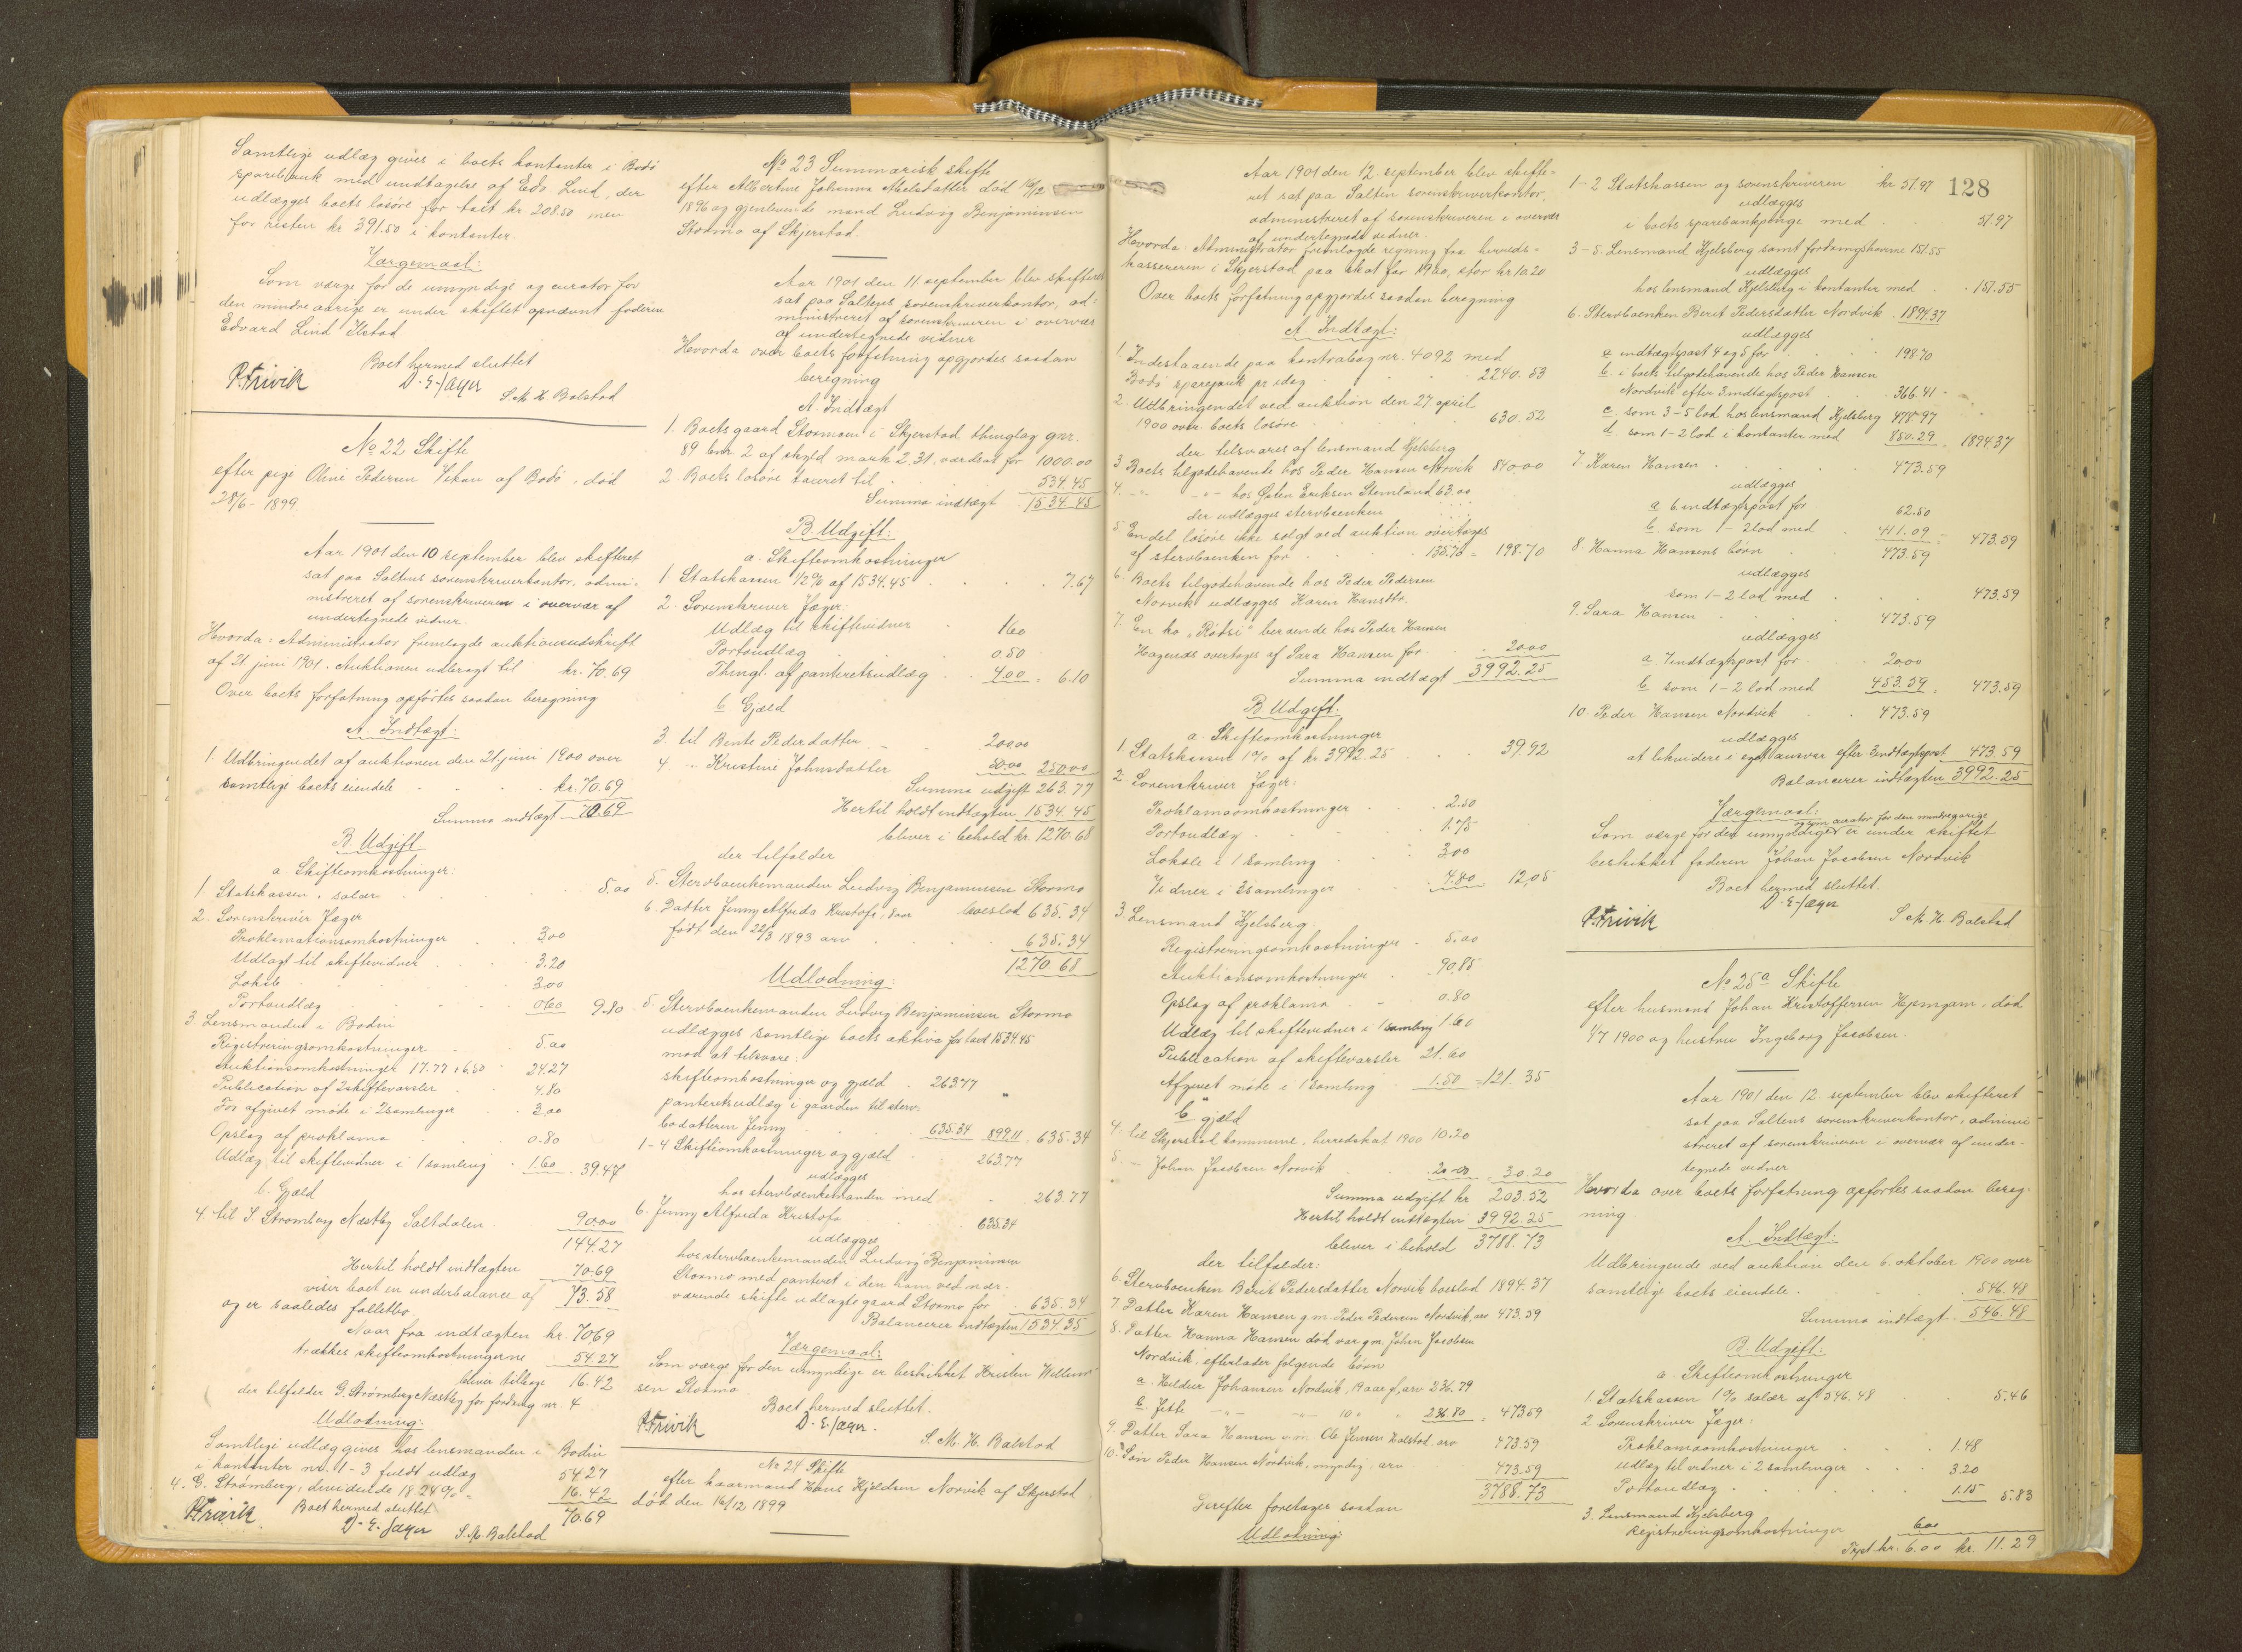 Samtlige udlæg gives i boets kontanter i Bodö
sparebank med undtagelse af Edv. Lind, der
udlægges boets lösöre for taxt kr 208.50 men
for resten kr 391.50 i kontanter.
Værgemaal:
Som værge for de umyndige og curator for
den mindreaarige er under skiftet opnævnt faderen
Edvard Lind Ilstad
Boet hermed sluttet
P. Trivik D. E. Jæger S. M. H. Balstad
No 22 Skifte
efter pige Oline Pedersen Vikan af Bodö, död
28/6 - 1899.
Aar 1901 den 10 september blev skifteret
sat paa Saltens sorenskriverkontor, admi-
nistreret af sorenskriveren i overvær af
undertegnede vidner.
Hvorda: Administrator fremlagde auktionsudskrift
af 21. juni 1901. Auktionen udbragt til kr. 70.69
Over boets forfatning opförtes saadan beregning
A. Indtægt:
1. Udbringendet af auktionen den 21. juni 1900 over
samtlige boets eiendele kr. 70.69
Summa indtægt 70.69
B. Udgift
a. Skifteomkostninger:
1. Statskassen, salær 5.00
2. Sorenskriver Jæger
Proklamationsomkostninger 3.00
Udlagt til skiftevidner 3.20
Lokale 3.00
Portoudlæg 0.60 9.80
3. Lensmanden i Bodin
Registreringsomkostninger 5.00
Auktionsomkostninger 17.77 + 6.50 24.27
Publication af 2 skiftevarsler 4.80
For afgivet möde i 2 samlinger 3.00
Opslag af proklama 0.80
Udlæg til skiftevidner i 1 samling 1.60 39.47
b. Gjæld
4. til S. Strömberg Næstby Saltdalen 90.00
144.27
Hertil holdt indtægten 70.69
viser boet en underbalance af 73.58
og er saaledes fallitbo
Naar fra indtægten kr. 70.69
trækkes skifteomkostningerne 54.27
bliver tilbage 16.42
der tilfalder G. Strömberg Næstby for fordring nr. 4
Udlodning:
Samtlige udlæg gives hos lensmanden i Bodin
i kontanter nr. 1-3 fuldt udlæg 54.27
4. G. Strömberg, dividende 18.24% 16.42
Boet hermed sluttet 70.69
P. Trivik D. E. Jæger S. M. Balstad
No 23 Summarisk skifte
efter Albertine Johanna Abelsdatter död 10/2
1896 og gjenlevende mand Ludvig Benjaminsen
Stormo af Skjerstad.
Aar 1901 den 11. september blev skifteret
sat paa Saltens sorenskriverkontor, ad-
ministreret af sorenskriveren i overvær
af undertegnede vidner
Hvorda over boets forfatning opgjordes saadan
beregning
A. Indtægt
1. Boets gaard Stormoen i Skjerstad thinglag gnr.
89 bnr. 2 af skyld mark 2.31, værdsat for 1000.00
2. Boets lösöre taxeret til 534.45
Summa indtægt 1534.45
B. Udgift:
a. Skifteomkostninger
1 Statskassen 1/2% af 1534.45 7.67
2. Sorenskriver Jæger:
Udlæg til skiftevidner 1.60
Portoudlæg 0.50
Thingl. af panteretsudlæg 4.00 = 6.10
b Gjæld
3. til Bente Pedersdatter 200.00
4 " Kristine Johnsdatter 50.00 250.00
Summa udgift 263.77
Hertil holdt indtægten 1534.45
bliver i behold kr. 1270.68
der tilfalder
5. Stervboenkemanden Ludvig Benjaminsen Stormo
boeslod 635.34
6. Datter Jenny Alfrida Kristofa, 8 aar
født den 22/3 1893 arv 635.34
1270.68
Udlodning:
5. Stervboenkemanden Ludvig Benjaminsen Stormo
udlægges samtlige boets aktiva for taxt 1534.45
mod at tilsvare:
skifteomkostninger og gjæld 263.77
panteretsudlæg i gaarden til sterv-
bodatteren Jenny 635.34 899.11 635.34
1-4 Skifteomkostninger og gjæld 263.77
udlægges
hos stervboenkemanden med 263.77
6. Jenny Alfrida Kristofa 635.34
udlægges
hos stervboenkemanden Ludvig Benjaminsen
Stormo med panteret i den ham ved nær-
værende skifte udlagte gaard Stormo for 635.34
Balancerer indtægten 1534.35
Værgemaal:
Som værge for den umyndige er beskikket Kristen Willum-
sen Stormo.
Boet hermed sluttet.
P. Trivik D. E. Jæger. S. M. H. Balstad
No 24 Skifte
efter kaarmand Hans Kjeldsen Norvik af Skjerstad
död den 16/12 1899
Aar 1901 den 12. september blev skifte-
ret sat paa Salten sorenskriverkontor,
administreret af sorenskriveren i overvær
af undertegnede vidner.
Hvorda: Administrator fremlagde regning fra herreds-
kassereren i Skjerstad paa skat for 1900, stor kr 10.20
Over boets forfatning opgjordes saadan beregning
A. Indtægt:
1. Indestaaende paa kontrabog nr. 4092 med
Bodö sparebank pr. idag 2240.53
2. Udbringendet ved auktion den 27 april
1900 over boets lösöre 630.52
der tilsvares af lensmand Hjelsberg
3 Boets tilgodehavende hos Peder Hansen Norvik 840.00
4. - " - - " - hos Östen Eriksen Stemland 63.00
der udlægges stervboenken
5. En del lösöre ikke solgt ved auktion overtages
af stervboenken for 135.70 = 198.70
6. Boets tilgodehavende hos Peder Pedersen
Norvik udlægges Karen Hansdtr.
7. En ko "Rödsi" beroende hos Peder Hansen
Hagenæs overtages af Sara Hansen for 20.00
Summa indtægt 3992.25
B Udgift:
a. Skifteomkostninger
1. Statskassen 1% af kr. 3992.25 39.92
2. Sorenskriver Jæger:
Proklamaomkostninger 2.50
Portoudlæg 1.75
Lokale i 1 samling 3.00
Vidner i 3 samlinger 4.80 12.05
3. Lensmand Hjelsberg
Registreringsomkostninger 5.00
Auktionsomkostninger 90.85
Opslag af proklama 0.80
Udlæg til skiftevidner i 1 samling 1.60
Publication af skiftevarsler 21.60
Afgivet möde i 1 samling 1.50 = 121.35
b gjæld
4. til Skjerstad kommune, herredskat 1900 10.20
5. - Johan Jacobsen Norvik 20.00 30.20
Summa udgift kr 203.52
Hertil holdt indtægten 3992.25
bliver i behold 3788.73
der tilfalder:
6. Stervboenken Berit Pedersdatter Norvik boeslod 1894.37
7. Datter Karen Hansen g.m. Peder Pedersen Nordvik, arv 473.59
8. Datter Hanna Hansen död, var g.m. Johan Jacobsen
Nordvik, efterlader fölgende börn
a. Heldier Johansen Nordvik, 19 aar gl, arv 236.79
b. -"- -"- 10 " 236.80 = 473.59
9. Datter Sara Hansen g.m. Ole Jensen Kolstad, arv 473.59
10. Sön Peder Hansen Nordvik, myndig, arv 473.59
3788.73
Herefter foretages saadan
Udlodning:
128
1-2 Statskassen og sorenskriveren kr 51.97
udlægges
i boets sparebankpenge med 51.97
3-5. Lensmand Hjelsberg samt fordringshaverne 151.55
udlægges
hos lensmand Hjelsberg i kontanter med 151.55
6. Stervboenken Berit Pedersdatter Nordvik 1894.37
udlægges
a indtægtspost 4 og 5 for 198.70
b. i boets tilgodehavende hos Peder Hansen
Nordvik efter 3 indtægtspost 366.41
c. som 3-5 lod hos lensmand Hjelsberg 478.97
d som 1-2 lod i kontanter med 850.29 1894.37
7 Karen Hansen 473.59
udlægges
a 6 indtægtspost for 62.50
b. som 1-2 lod med 411.09 = 473.59
8. Hanna Hansens börn 473.59
udlægges
som 1-2 lod med 473.59
9. Sara Hansen 473.59
udlægges
a. 7 indtægtspost for 20.00
b som 1-2 lod med 453.59 473.59
10. Peder Hansen Nordvik 473.59
udlægges
at likvidere i eget ansvar efter 3 indtægtspost 473.59
Balancerer indtægten 3992.25
Værgemaal:
og som curator for den mindreaarige
Som værge for den umyndige er under skiftet
beskikket faderen Johan Jacobsen Nordvik
Boet hermed sluttet.
P. Trivik D. E. Jæger S. M. H. Balstad
No 25a Skifte
efter husmand Johan Kristoffersen Hjemgam, död
4/7 1900 og hustru Ingeborg Jacobsen
Aar 1901 den 12. september blev skifteret
sat paa Saltens sorenskriverkontor, admini-
streret af sorenskriveren i overvær af under-
tegnede vidner
Hvorda over boets forfatning opförtes saadan bereg-
ning
A. Indtægt:
Udbringende ved auktion den 6. oktober 1900 over
samtlige boets eiendele. 546.48
Summa indtægt 546.48
B. Udgift:
a. Skifteomkostninger
1. Statskassen 1% salær af 546.48 5.46
2 Sorenskriver Jæger:
Proklamaomkostninger 1.48
Udlæg til vidner i 2 samlinger 3.20
Portoudlæg 1.15 5.83
3. Lensmand Hjelsberg
Registreringsomkostninger 6.00
Trpt. kr. 6.00 kr. 11.29